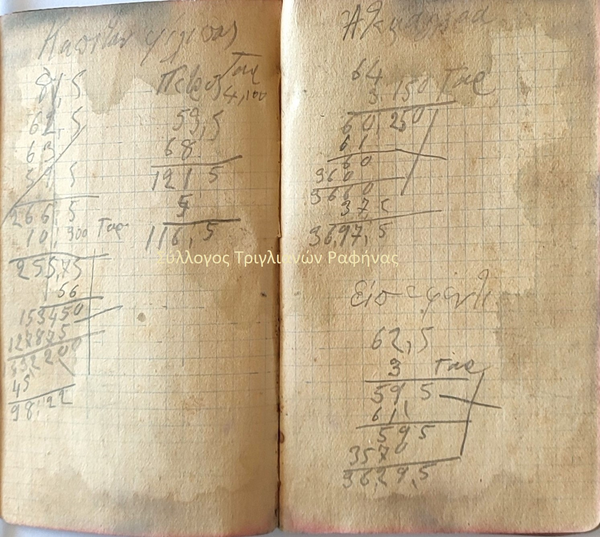 Καπετάν φίλιπας
84,5
62,5
63
57,5
266,5
10,900 Ταρ
255,75
56
153450
127875
1432200
45
98,22
Πέτρος Ταρ
4,100
59,5
68
121 5
5
116,5
64
3.150 Ταρ
60,250
61
60
360
3660
37,5
3697,5
62,5
3 Ταρ
59 5
61
59 5
3570
3629,5
Σύλλογος Τριγλιανών Ραφήνας